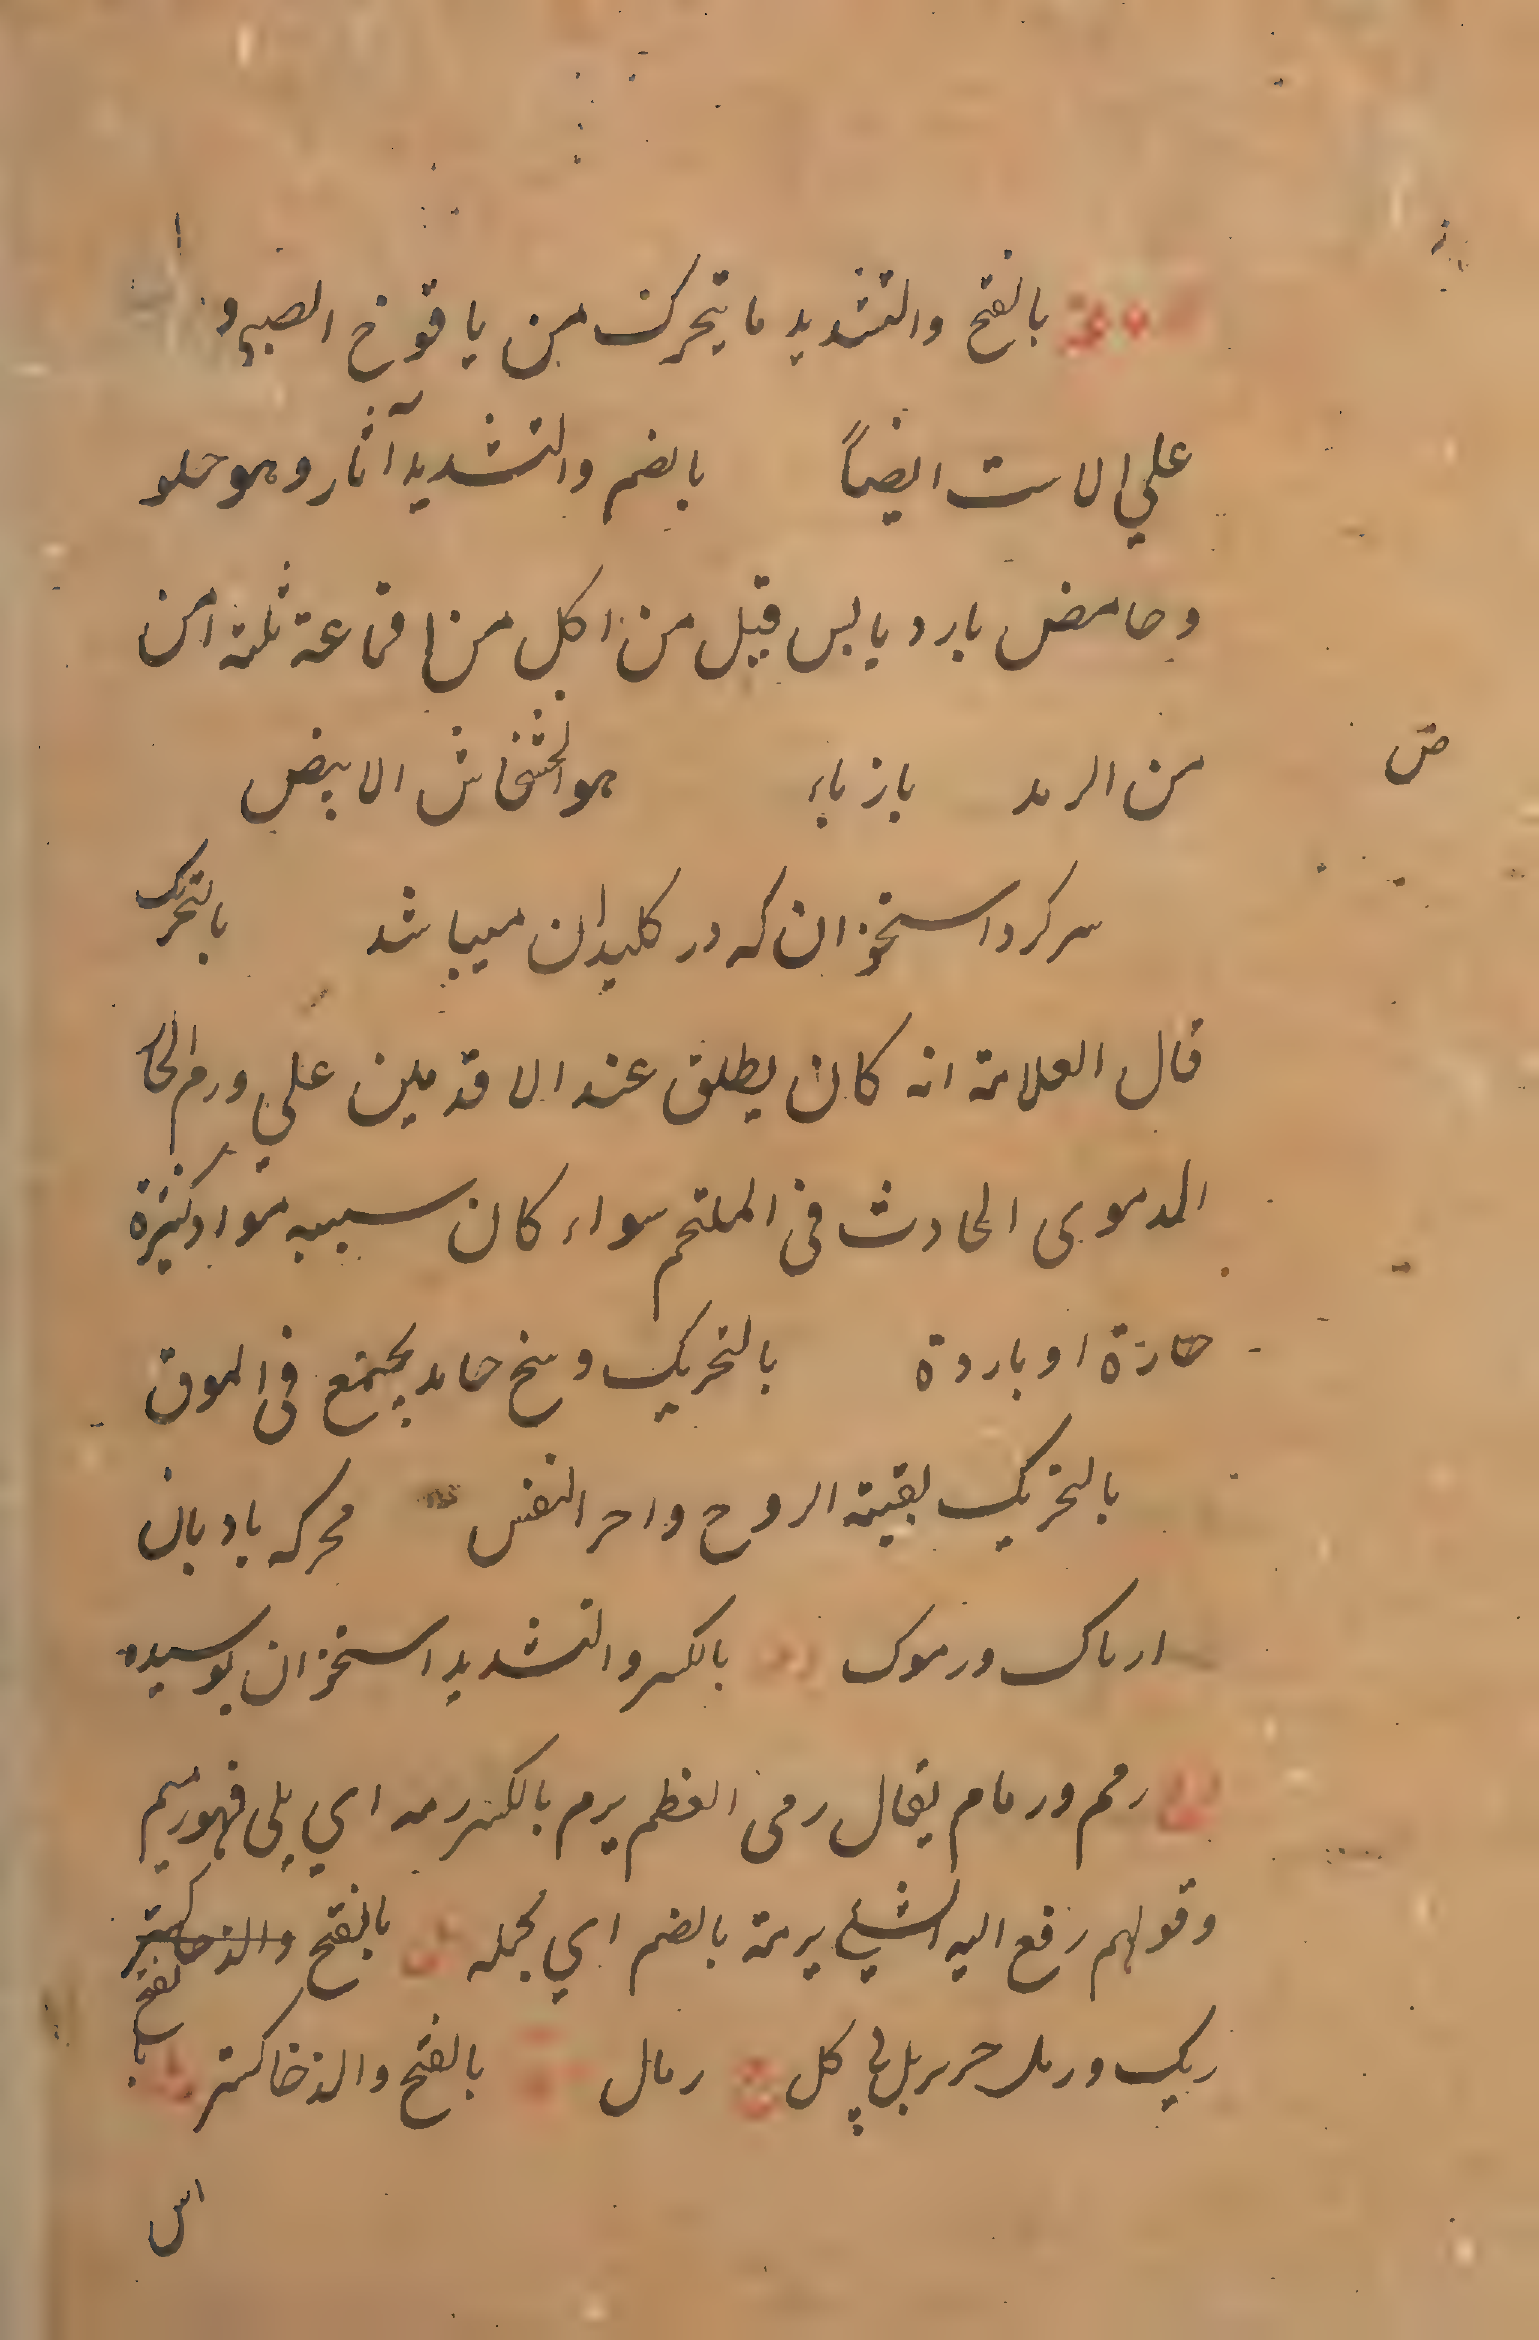 بالفتح والتشديد ما يتحرك من يافوخ الصبي و
علي الاست ايضاً بالضم والتشديد آنار وهو حلو
وحامض بارد يابس قيل من اكل من اقماعة ثلثة امن
من الرمد بازباء هو الخشخاش الابيض
ض
سر كرد استخوان كه در كليدان ميباشد بالتحريك
قال العلامة انه كان يطلق عند الاقدمين علي ورم الحا
الدموى الحادث فى الملتحم سواء كان سببه مواد كثيرة
حارة او باردة بالتحريك وسخ جامد يجتمع فى الموق
بالتحريك بقية الروح واخر النفس محركه باديان
ارماك ورموك بالكسر والتشديد استخوان بوسيده
رمم ورمام يقال رمى العظم يرم بالكسر رمه اي بلى فهو رميم
وقولهم رفع اليه الشيئ برمة بالضم اي بجمله بالفتح والذخاكستر
ريك ورمل حرير بل فى كل رمال بالفتح والذخاكستر بالفتح
اس